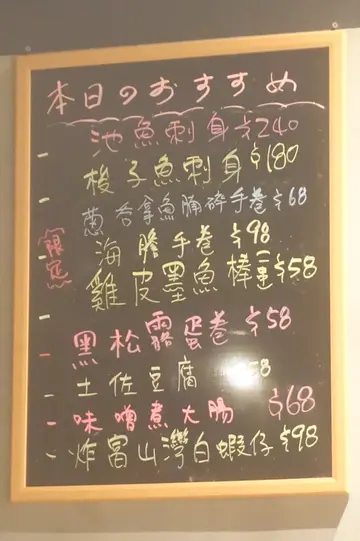 本日のおすすめ
池魚刺身 $240
梭子魚刺身 $180
蔥吞拿魚腩碎手卷 $68
限定
海膽手卷 $98
雞皮墨魚棒 二串 $58
黑松露蛋卷 $58
土佐豆腐 58
味噌煮大腸 $68
炸富山灣白蝦仔 $98